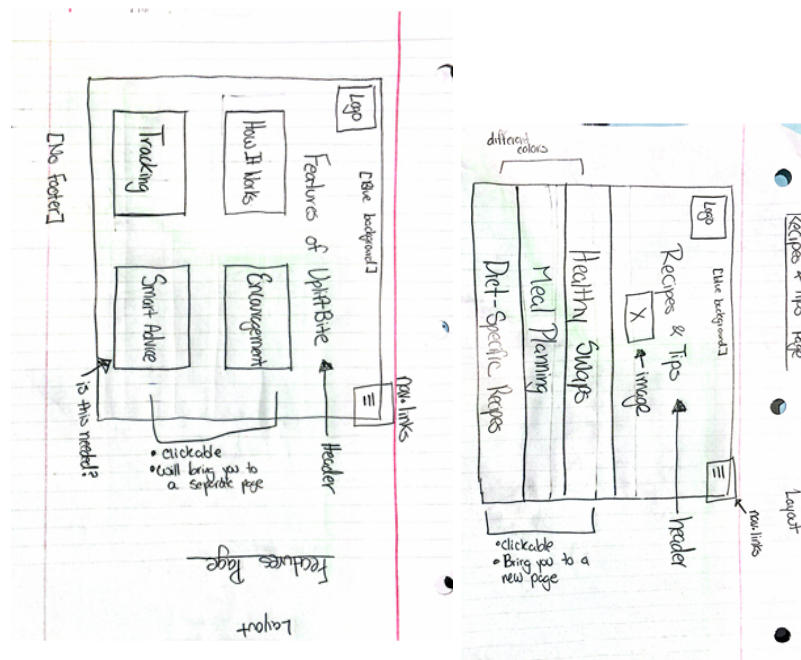 Logo
[Blue background]
nav. links
Features of UpliftBite
Header
How It Works
Encouragement
Tracking
Smart Advice
• clickable
• will bring you to
a separate page
is this needed?
[No Footer]
Features Page
Layout
Recipes & Tips Page
Layout
Logo
[Blue background]
nav. links
Recipes & Tips
header
X
image
Healthy Swaps
Meal Planning
Diet-Specific Recipes
different
colors
• clickable
• Bring you to a
new page